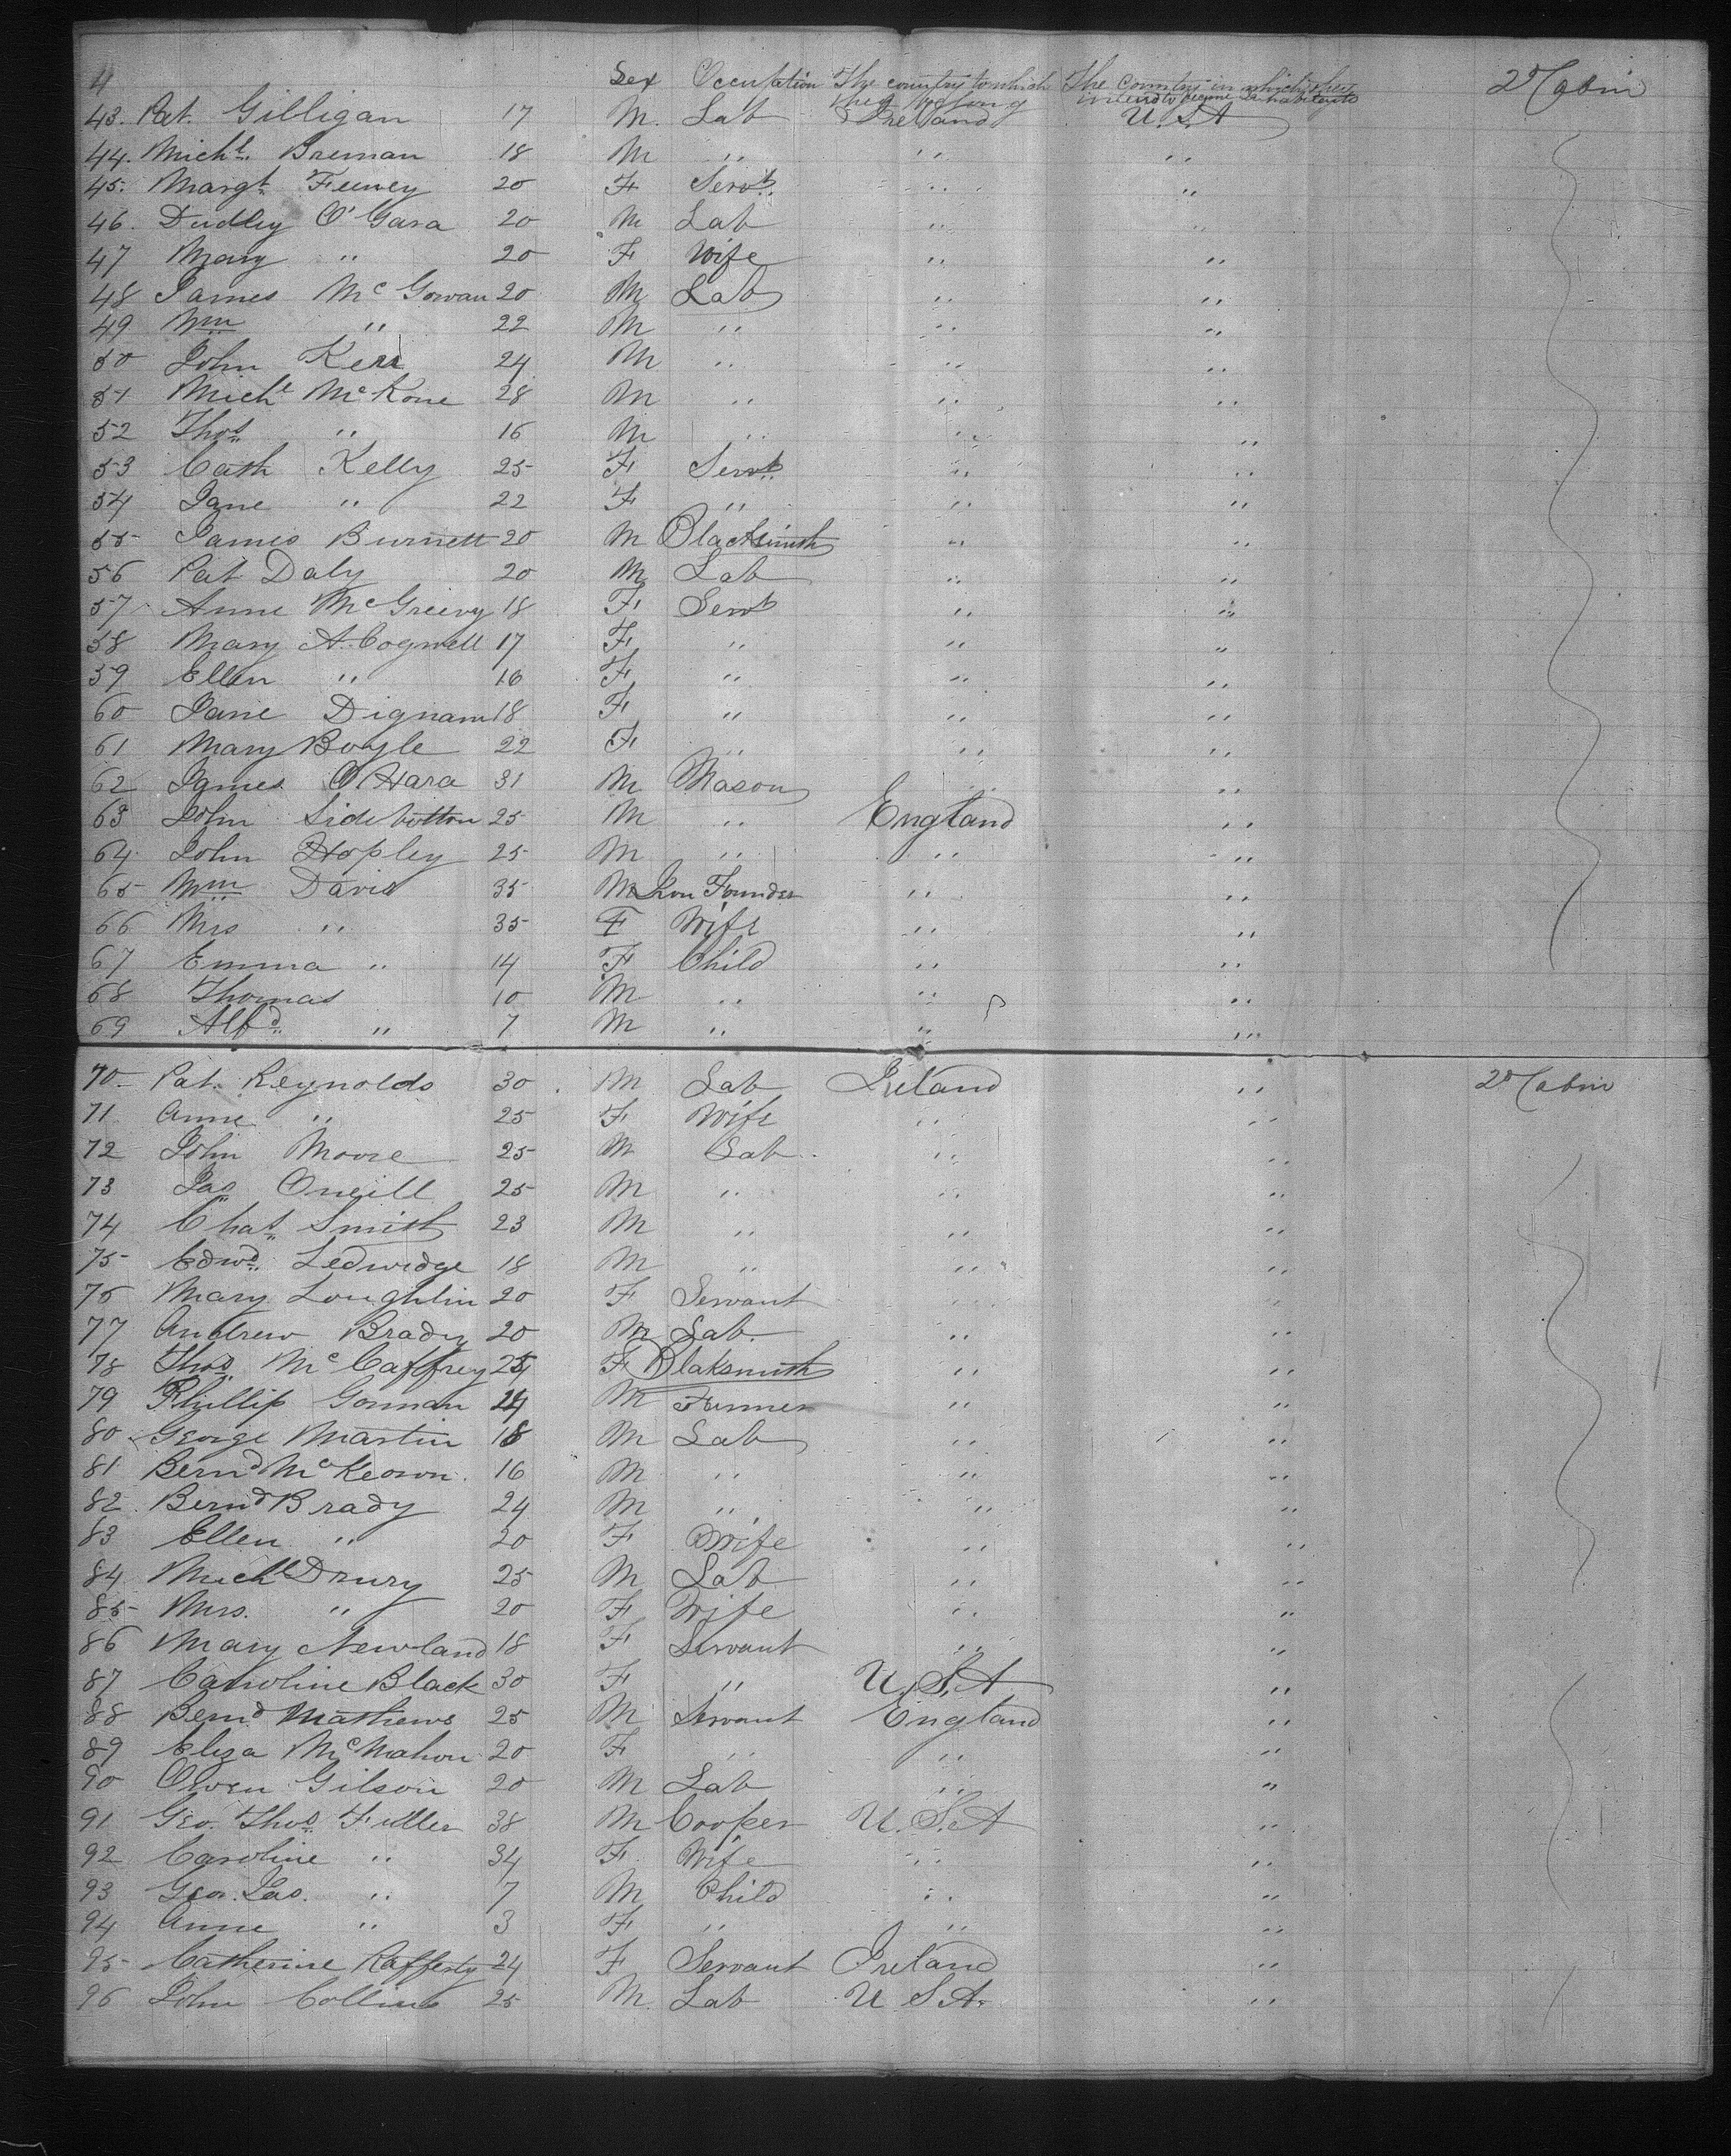 4 Sex Occupation The country to which they belong The Country in which they intend to become inhabitants 2d Cabin
43. Pat. Gilligan 17 M. Lab Ireland U.S.A
44. Michl. Brennan 18 M " " "
45. Margt. Feeney 20 F Servt. " "
46. Dudley O'Gara 20 M Lab " "
47 Mary " 20 F Wife " "
48 James McGowan 20 M Lab " "
49 Wm " 22 M " " "
50 John Kerr 24 M " " "
51 Michl McKone 28 M " " "
52 Thos. " 16 M " " "
53 Cath Kelly 25 F Servt. " "
54 Jane " 22 F " " "
55 James Burnett 20 M Blacksmith " "
56 Pat Daly 20 M Lab " "
57 Anne McGreevy 18 F Servt " "
58 Mary A. Cogwell 17 F " " "
59 Ellen " 16 F " " "
60 Jane Dignam 18 F " " "
61 Mary Boyle 22 F " " "
62 James O'Hara 31 M Mason " "
63 John Sidebottom 25 M " England "
64 John Hopley 25 M " " "
65 Wm Davis 35 M Iron Founder " "
66 Mrs " 35 F Wife " "
67 Emma " 14 F Child " "
68 Thomas 10 M " " "
69 Alfd. " 7 M " " "
70 Pat. Reynolds 30 M Lab Ireland " 2d Cabin
71 Anne " 25 F Wife " "
72 John Moore 25 M Lab " "
73 Jas Oneill 25 M " " "
74 Chas. Smith 23 M " " "
75 Edwd. Ledwidge 18 M " " "
76 Mary Loughlin 20 F Servant " "
77 Andrew Brady 20 M Lab " "
78 Thos. McCaffrey 25 F Blaksmith " "
79 Phillip Gorman 24 M Farmer " "
80 George Martin 18 M Lab " "
81 Bernd McKeown 16 M " " "
82 Bernd Brady 24 M " " "
83 Ellen " 20 F Wife " "
84 Michl Drury 25 M Lab " "
85 Mrs. " 20 F Wife " "
86 Mary Newland 18 F Servant " "
87 Caroline Black 30 F " U.S.A "
88 Bernd Mathews 25 M Servant England "
89 Eliza McMahon 20 F " " "
90 Owen Gilson 20 M Lab " "
91 Geo. Thos. Fuller 38 M Cooper U.S.A "
92 Caroline " 34 F Wife " "
93 Geo. Jas. " 7 M Child " "
94 Anne " 3 F " " "
95 Catherine Rafferty 24 F Servant Ireland "
96 John Collins 25 M. Lab U S A. "